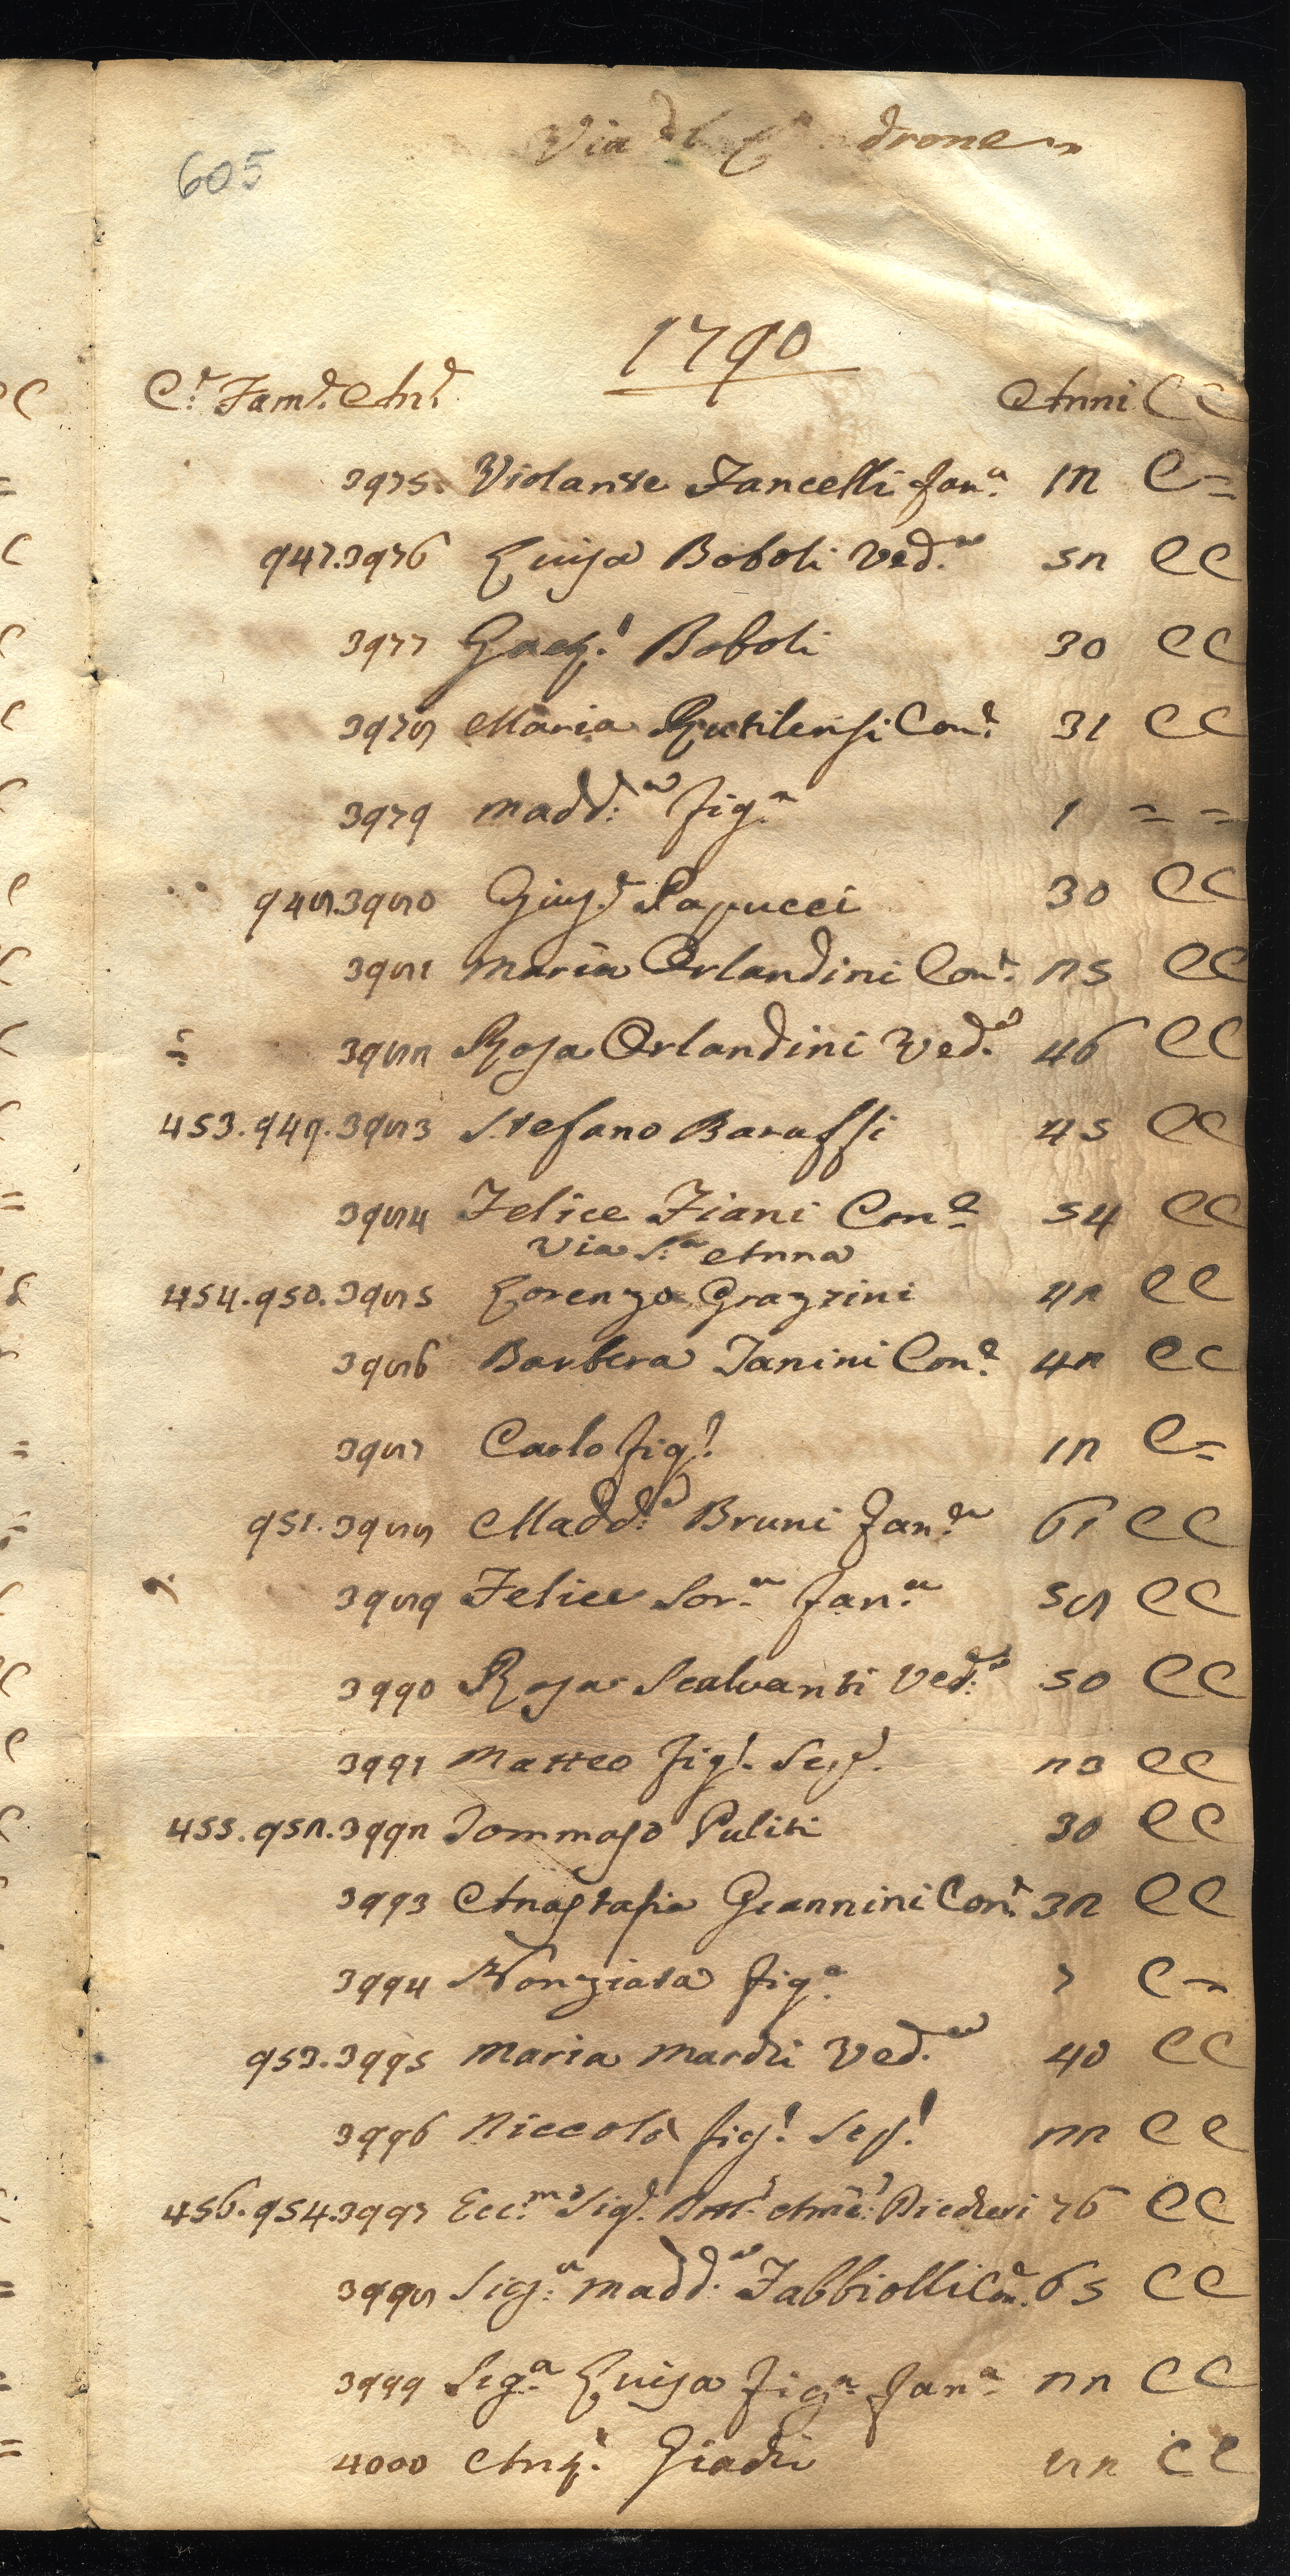 605
Via drone
1790
C.e Fam.e An.e Anni C C
3975. Violante Fancelli fan.a 12 C =
947.3976 Luisa Boboli Ved.a 52 C C
3977 Gaet.o Boboli 30 C C
3978 Maria Rutilensi Con.e 31 C C
3979 Madd.a fig.a 1 = =
948.3980 Gius.e Papucci 30 C C
3981 Maria Orlandini Con.e 25 C C
3982 Rosa Orlandini Ved.a 46 C C
453.949.3983 Stefano Baraffi 45 C C
3984 Felice Fiani Con.e 54 C C
Via S.a Anna
454.950.3985 Lorenzo Grazzini 42 C C
3986 Barbera Janini Con.e 42 C C
3987 Carlo fig.o 12 C =
951.3988 Madd.a Bruni fan.a 61 C C
3989 Felice Sor.a fan.a 58 C C
3990 Rosa Scalvanti Ved.a 50 C C
3991 Matteo fig.o Scap.o 23 C C
455.952.3992 Tommaso Puliti 30 C C
3993 Anastasia Geannini Con.e 32 C C
3994 Nonziata fig.a 7 C =
953.3995 Maria Mardi Ved.a 40 C C
3996 Niccolò fig.o Scap.o 22 C C
456.954.3997 Ecc.mo Sig.e 76 C C
3998 Sig.a Madd.a Fabbiolli Con.e 65 C C
3999 Sig.a Luisa fig.a fan.a 22 C C
4000 Ant.o Giadi 82 C C